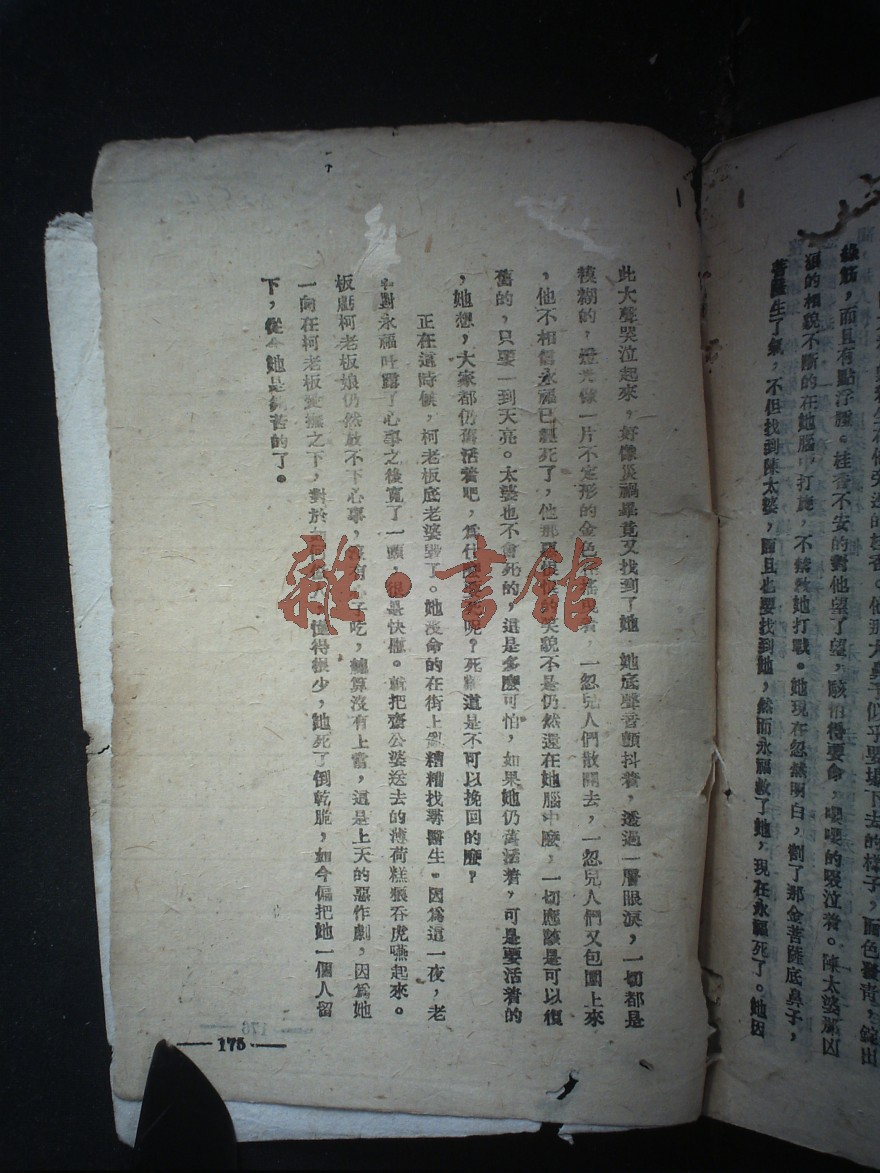 綠筋，而且有點浮腫。桂香不安的對他望了望，駭怕得要命，嚶嚶的啜泣着。陳太婆那凶
狠的相貌不斷的在她腦中打旋，不禁教她打戰。她現在忽然明白，割了那金菩薩底鼻子，
菩薩生了氣，不但找到陳太婆，而且也要找到她，然而永福救了她，現在永福死了。她因
此大聲哭泣起來，好像災禍畢竟又找到了她 她底聲音顫抖着，透過一層眼淚，一切都是
模糊的，燈光像一片不定形的金色在搖晃着，一忽兒人們散開去，一忽兒人們又包圍上來
，他不相信永福已經死了，他那 的笑貌不是仍然還在她腦中麼，一切應該是可以復
舊的，只要一到天亮。太婆也不會死的，這是多麼可怕，如果她仍舊活着，可是要活着的
，她想，大家都仍舊活着吧，爲什麼要死呢？死難道是不可以挽回的麼？
正在這時候，柯老板底老婆 了。她沒命的在街上亂糟糟找尋醫生。因爲這一夜，老
和對永福吐露了心事之後寬了一頭，很是快樂。就把齋公婆送去的薄荷糕狼吞虎嚥起來。
板 柯老板娘仍然放不下心事，沒有 吃，總算沒有上當，這是上天的惡作劇，因爲她
一向在柯老板愛撫之下，對於 懂得很少，她死了倒乾脆，如今偏把她一個人留
下，從今她是夠苦的了。
— 175 —
雜·書館